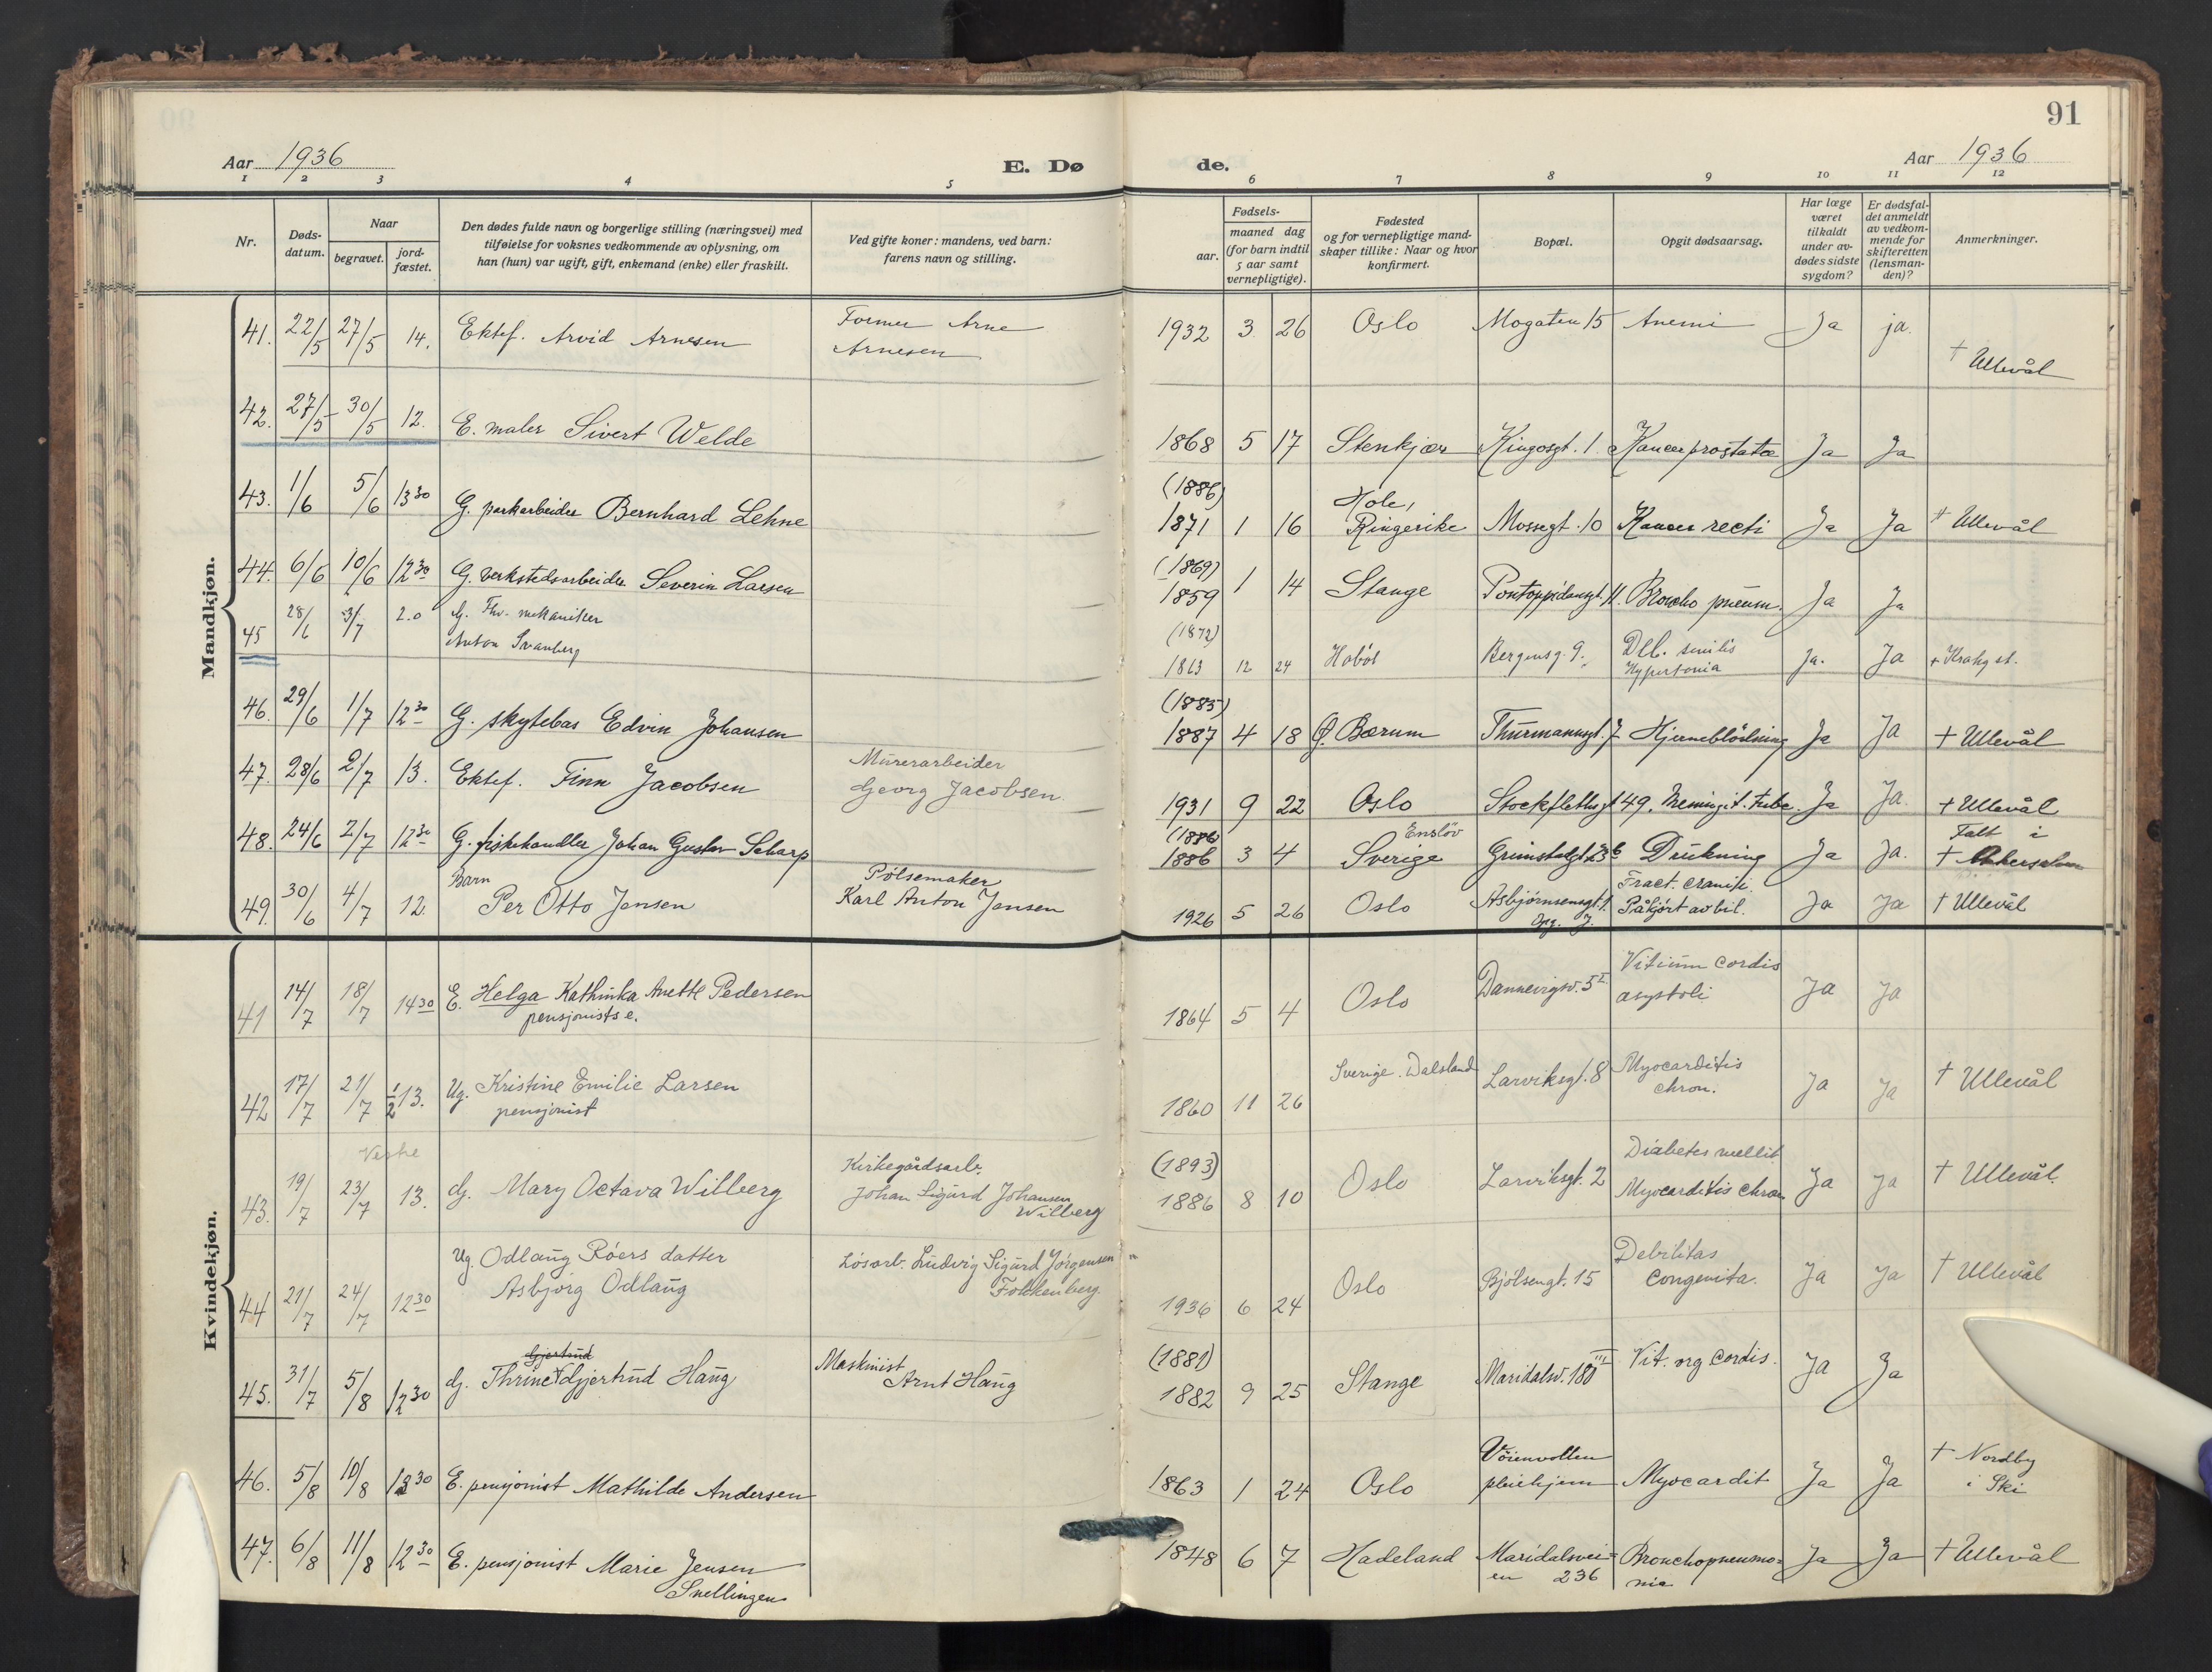 91
Aar 1936
E. Dø
de.
Aar 1936
1 2 3 4 5 6 7 8 9 10 11 12
Nr.
Døds-
datum.
Naar
begravet.
jord-
fæstet.
Den dødes fulde navn og borgerlige stilling (næringsvei) med
tilføielse for voksnes vedkommende av oplysning, om
han (hun) var ugift, gift, enkemand (enke) eller fraskilt.
Ved gifte koner: mandens, ved barn:
farens navn og stilling.
Fødsels-
aar.
maaned dag
(for barn indtil
5 aar samt
vernepligtige).
Fødested
og for vernepligtige mand-
skaper tillike: Naar og hvor
konfirmert.
Bopæl.
Opgit dødsaarsag.
Har læge
været
tilkaldt
under av-
dødes sidste
sygdom?
Er dødsfal-
det anmeldt
av vedkom-
mende for
skifteretten
(lensman-
den)?
Anmerkninger.
Mandkjøn.
41. 22/5 27/5 14. Ektef. Arvid Arnesen
Former Arne
Arnesen
1932 3 26 Oslo Mogaten 15 Anemi Ja ja.
† Ullevål
42. 27/5 30/5 12. E. maler Sivert Welde
1868 5 17 Stenkjær Kingosgt. 1 Kancer prostatæ Ja Ja
43. 1/6 5/6 13 30 G. parkarbeider Bernhard Lehne
(1886)
1871 1 16 Hole,
Ringerike Mossegt. 10 Kancer recti Ja Ja † Ullevål
44. 6/6 10/6 12 30 G. verkstedsarbeider Severin Larsen
(1869)
1859 1 14 Stange Pontoppidansgt. 11. Broncho pneum. Ja Ja
45 28/6 3/7 2.0 G. Fhv. mekaniker
Anton Svanberg
(1872)
1863 12 24 Hobøl Bergensg. 9. Deb. senilis
Hypertonia Ja. Ja + Krohg st.
46. 29/6 1/7 12 30 G. skytebas Edvin Johansen
(1885)
1887 4 18 Ø. Bærum Thurmannsgt. 7 Hjerneblødning Ja Ja + Ullevål
47. 28/6 2/7 13. Ektef. Finn Jacobsen
Murerarbeider
Georg Jacobsen.
1931 9 22 Oslo Stockflethsgt 49. Meningit. tube. Ja Ja. + Ullevål
48. 24/6 2/7 12 30 G. fiskehandler Johan Gustav Scharp
(1886)
1886 3 4 Enslöv
Sverige Grimstadgt 23 b Drukning Ja Ja. Falt i
† Akerselven
49. 30/6 4/7 12. Barn
Per Otto Jensen
Pølsemaker
Karl Anton Jensen
1926 5 26 Oslo Asbjørnsensgt. 1.
Opg. J. Fract. cranii.
Påkjørt av bil. Ja Ja † Ullevål
Kvindekjøn.
41 14/7 18/7 14 30 E. Helga Kathinka Anette Pedersen
pensjonists e.
1864 5 4 Oslo Dannevigsv. 5 I Vitium cordis
asystoli Ja Ja
42 17/7 21/7 1/2 13. Ug. Kristine Emilie Larsen
pensjonist
1860 11 26 Sverige. Dalsland Larviksgt. 8 Myocarditis
chron. Ja Ja † Ullevål
43. 19/7 Vestre
23/7 13. G. Mary Octava Wilberg
Kirkegårdsarb.
Johan Sigurd Johansen
Wilberg
(1893)
1886 8 10 Oslo Larviksgt. 2 Diabetes mellit.
Myocarditis chron Ja Ja † Ullevål.
44 21/7 24/7 12 30 Ug. Odlaug Róers datter
Asbjørg Odlaug
Løsarb. Ludvig Sigurd Jørgensen
Folkenberg
1936 6 24 Oslo Bjølsengt. 15 Debilitas
Congenita. Ja Ja † Ullevål
45. 31/7 5/8 12 30 Gjertrud
G. Thrine Gjertrud Haug
Maskinist
Arnt Haug
(1881)
1882 9 25 Stange Maridalsv. 180 III Vit. org cordis. Ja Ja
46. 5/8 10/8 13 30 E. pensjonist Mathilde Andersen
1863 1 24 Oslo Vøienvollen
pleiehjem Myocardit Ja Ja † Nordby
i Ski
47. 6/8 11/8 12 30 E. pensjonist Marie Jensen
Snellingen
1848 6 7 Hadeland Maridalsvei=
en 236 Bronchopneumo=
nia Ja Ja † Ullevål